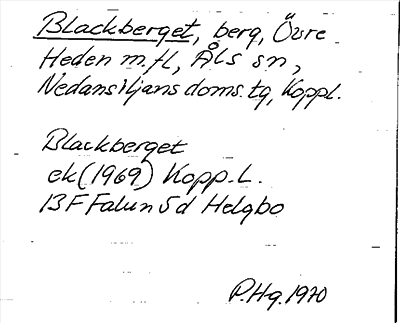 Blackberget, berg, Övre
Heden m.fl, Åls sn,
Nedansiljans doms.tg, Koppl.
Blackberget
ek (1969) Kopp.L.
13F Falun 5d Helgbo
P.Hg.1970